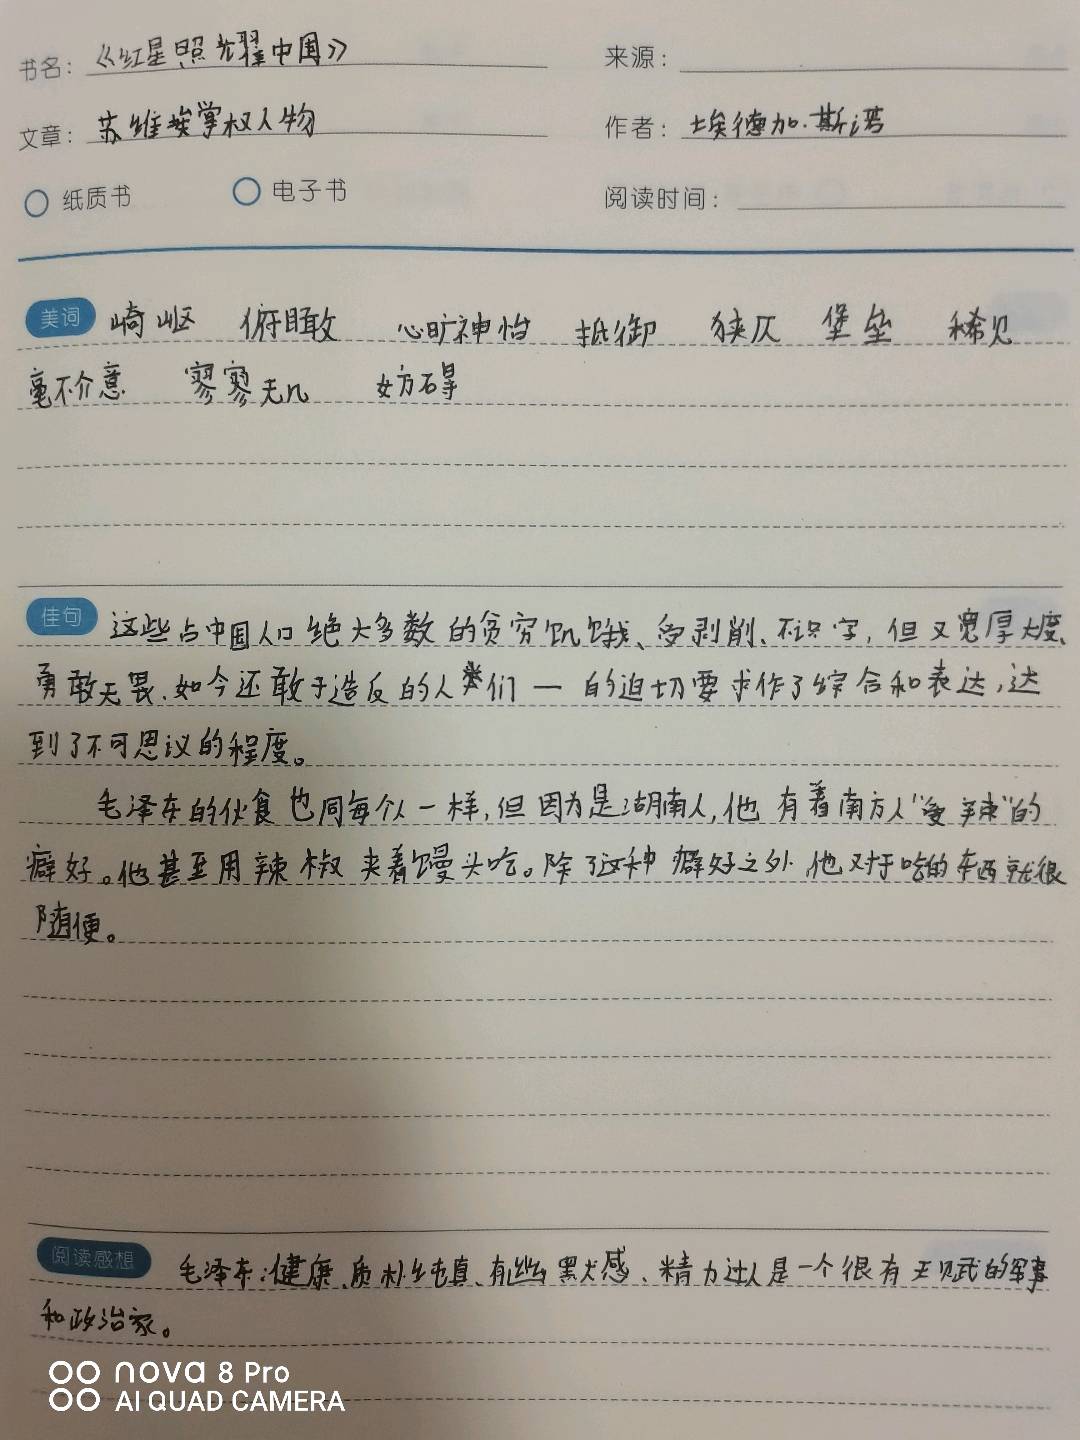 书名: 《红星照耀中国》 来源:
文章: 苏维埃掌权人物 作者: 埃德加·斯诺
纸质书 电子书 阅读时间:
美词 崎岖 俯瞰 心旷神怡 抵御 狭仄 堡垒 稀见
毫不介意 寥寥无几 妨碍
佳句 这些占中国人口绝大多数的贫穷饥饿、受剥削、不识字,但又宽厚大度、
勇敢无畏、如今还敢于造反的人类们一的迫切要求作了综合和表达,达
到了不可思议的程度。
毛泽东的伙食也同每个人一样,但因为是湖南人,他有着南方人“爱辣”的
癖好。他甚至用辣椒夹着馒头吃。除了这种癖好之外,他对于吃的东西就很
随便。
阅读感想 毛泽东:健康、质朴纯真、有幽默感、精力过人是一个很有天赋的军事
和政治家。
nova 8 Pro
AI QUAD CAMERA